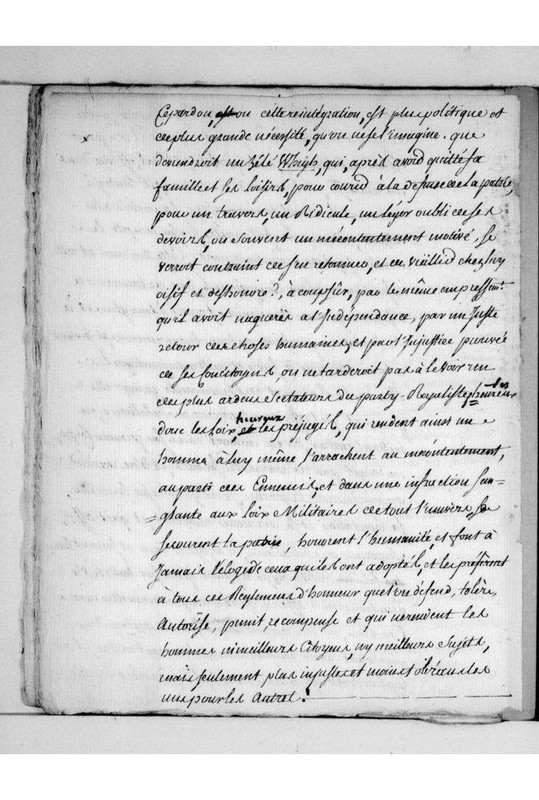 Ce pardon, est ou cette reintégration, est plus politique et
de plus grande nécessité, qu'on ne se l'imagine. que
deviendroit un zélé Whigh, qui, après avoir quitté sa
famille et ses loisirs, pour courir à la defense de la patrie,
pour un travers, un Ridicule, un léger oubli de ses
devoirs, ou souvent un mécontentement motivé, se
verroit contraint de s'en retourner, et de vieillir chez luy
oisif et deshonoré?, à coup sûr, par le même empressemt
qu'il avoit naguerés à l'indépendance, par un juste
retour des choses humaines, et par l'injustice prouvée
de ses Concitoyens, on ne tarderoit pas à le voir un
des plus ardens sectateurs du party-Royaliste, heureuses
donc les Loix, et heureux les préjugés, qui rendent ainsi un
homme à luy même, l'arrachent au mécontentement,
au parti des Ennemis, et dans une infraction san=
=glante aux loix Militaires de tout l'univers,
secourent la patrie, honorent l'humanité et font à
Jamais l'éloge de ceux qui les ont adoptés, et les préférent
à tous ces Reglemens d'honneur que l'on défend, tolére,
Autorise, punit, recompense et qui ne rendent les
hommes ni meilleurs Citoyens, ny meilleurs Sujets,
mais seulement plus injustes et moins
uns pour les Autres.